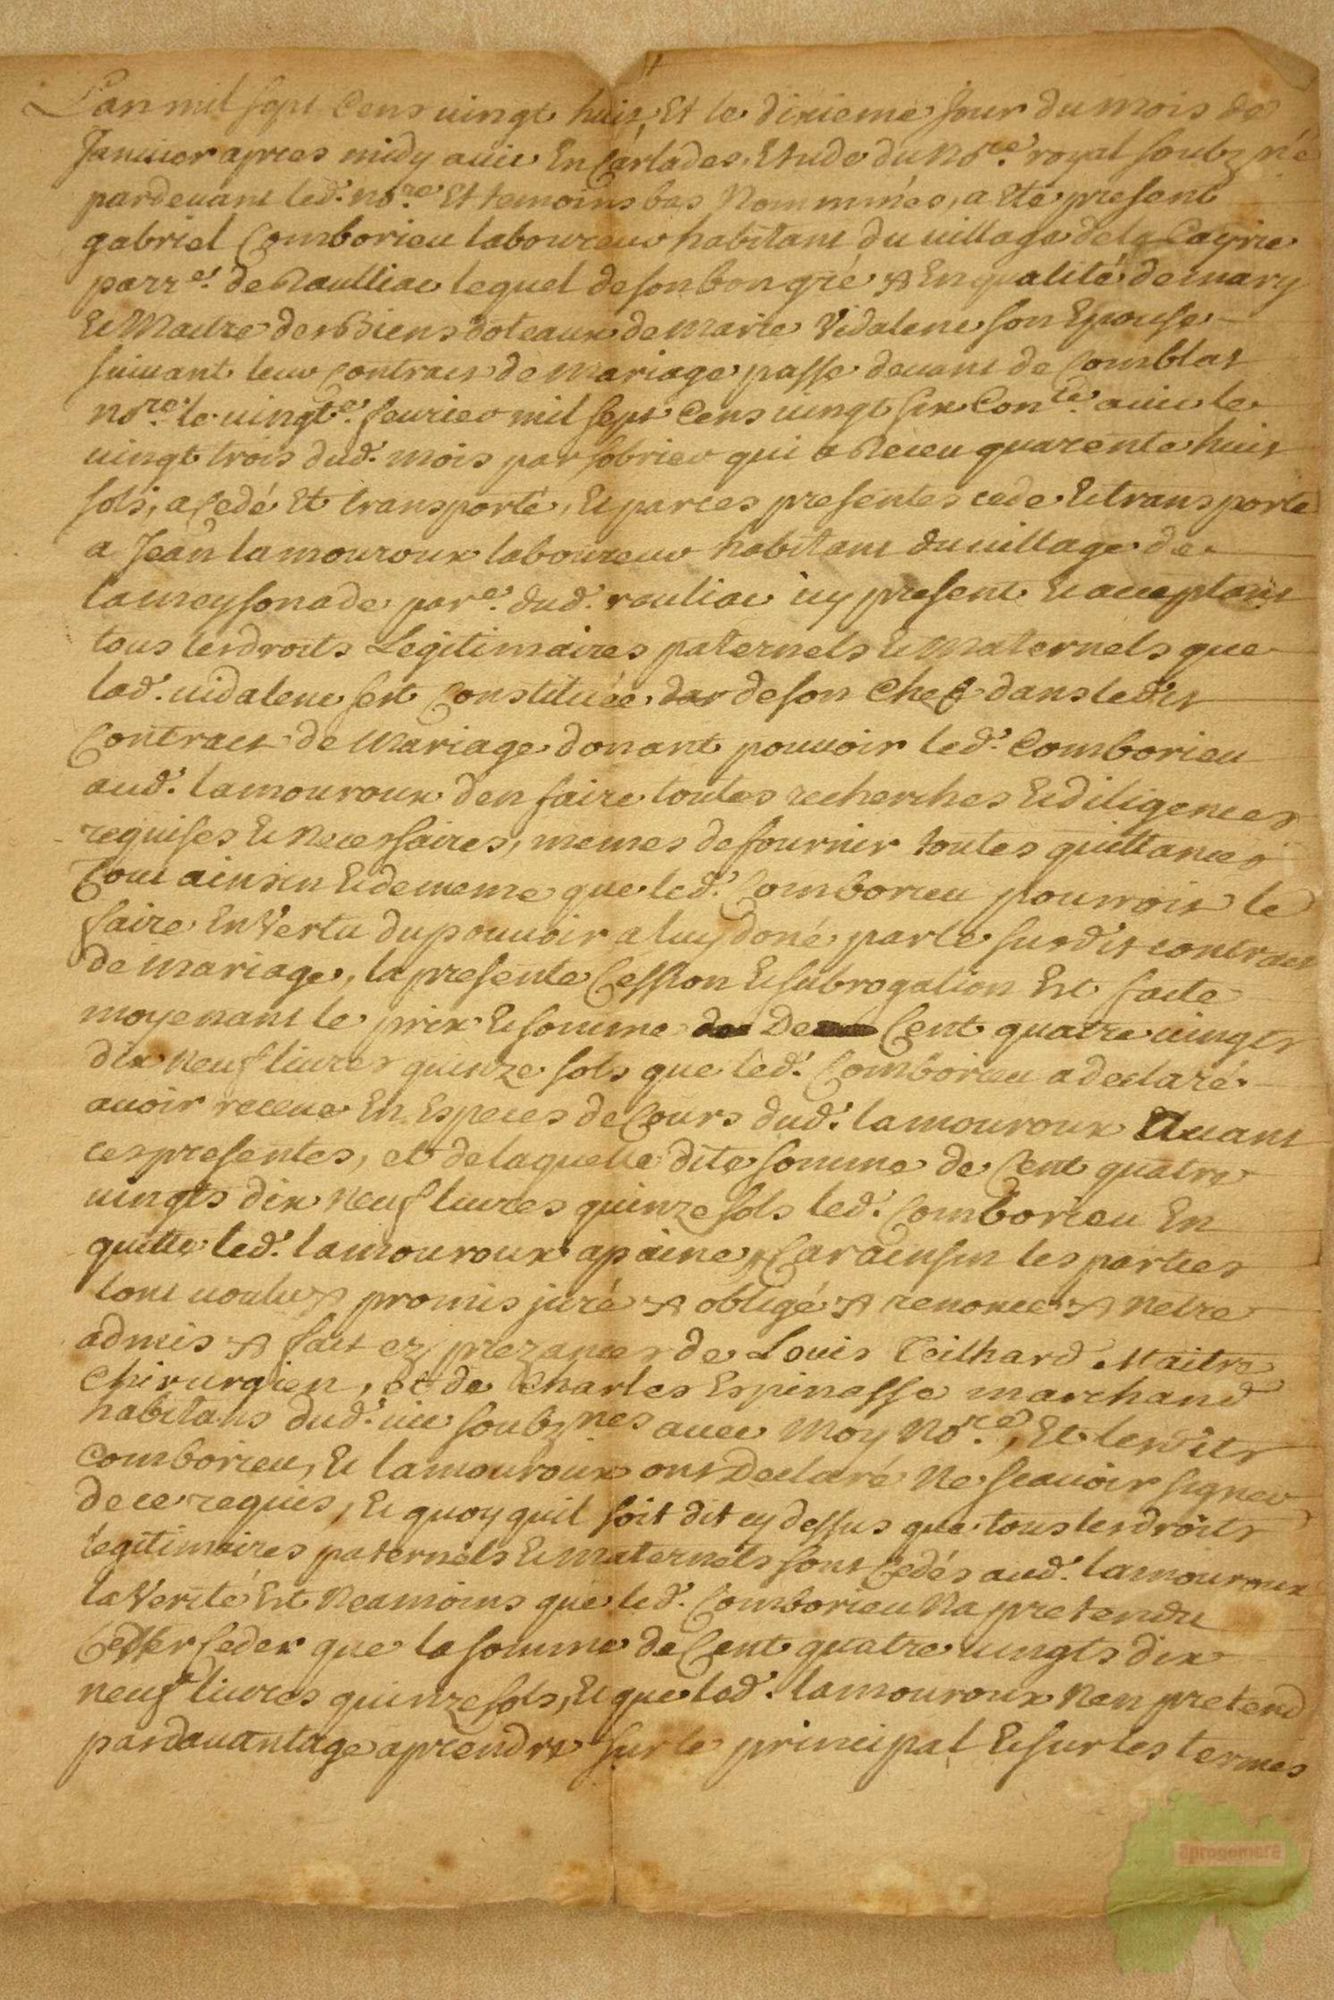 L'an mil sept cens uingt huit, Et le dixieme Jour du mois de
Januier apres midy a uic En Carlades, Etude du No.re royal soubz.né
pardeuant led. no.re Et temoins bas Nommnés, a eté present
gabriel Comborieu laboureur habitant du uillage de la Cayrie
parr.e de Raulliac lequel de son bon gré & En qualité de mary
Et Maitre des Biens doteaux de Marie Vidalene son Epouse
suiuant leur contract de Mariage passe deuant de Comblat
no.re le uingt.e feurier mil sept cens uingt six Con.lé a uic le
uingt trois dud. mois par sobrier qui a Receu quarente huit
sols, a cedé Et transporté, Et par ces presentes cede Et transporte
a Jean lamouroux laboureur habitant du uillage de
lameysonade par.e dud. rouliac icy present Et acceptant
tous les droits Legitimaires paternels Et Maternels que
lad. uidalene s'est Constituée de son Chef dans ledit
Contract de Mariage donant pouuoir led. Comborieu
aud. lamouroux d'en faire toutes recherches Et diligences
requises Et Necessaires, memes de fournir toutes quittances
Tout ainsin Et de meme que led. Comborieu pourroit le
faire En Vertu du pouuoir a luy doné par le susdit contract
de Mariage, la presente Cession Et subrogation Est faite
moyenant le prix Et somme De Cent quatre uingts
dix Neuf liures quinze sols que led. Comborieu a declaré
auoir receue En Especes de Cours dud. lamouroux Auant
ces presentes, et de laquelle dite somme de Cent quatre
uingts dix Neuf liures quinze sols led. Comborieu En
quitte led. lamouroux a paine & Car ainsin les parties
l'ont uoulu & promis juré & obligé & renoncé & Netre
admis & fait ez prezances de Louis Teilhard Maitre
Chirurgien, et de Charles Espinasse marchand
habitans dud. uic soubz.nes auec Moy No.re, Et lesdits
Comborieu, Et lamouroux ont Declaré Ne scauoir signer
de ce requis, Et quoy quil soit dit cy dessus que tous les droits
legitimaires paternels Et Maternels sont Cedés aud. lamouroux
la Verité Est Neamoins que led. Comborieu Na pretendu
Ceder que la somme de Cent quatre uingts dix
neuf liures quinze sols, Et que led. lamouroux N'en pretend
pas dauantage a prendre sur le principal Et sur les termes
aprogemere